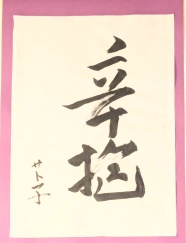 辛抱
サトヱ子